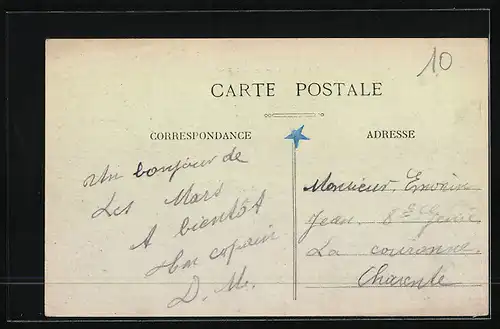 10
CARTE POSTALE
CORRESPONDANCE
ADRESSE
Un bonjour de
Les Mars
A bientôt
Un copain
D. M.
Monsieur
Jean
La couronne
Charente